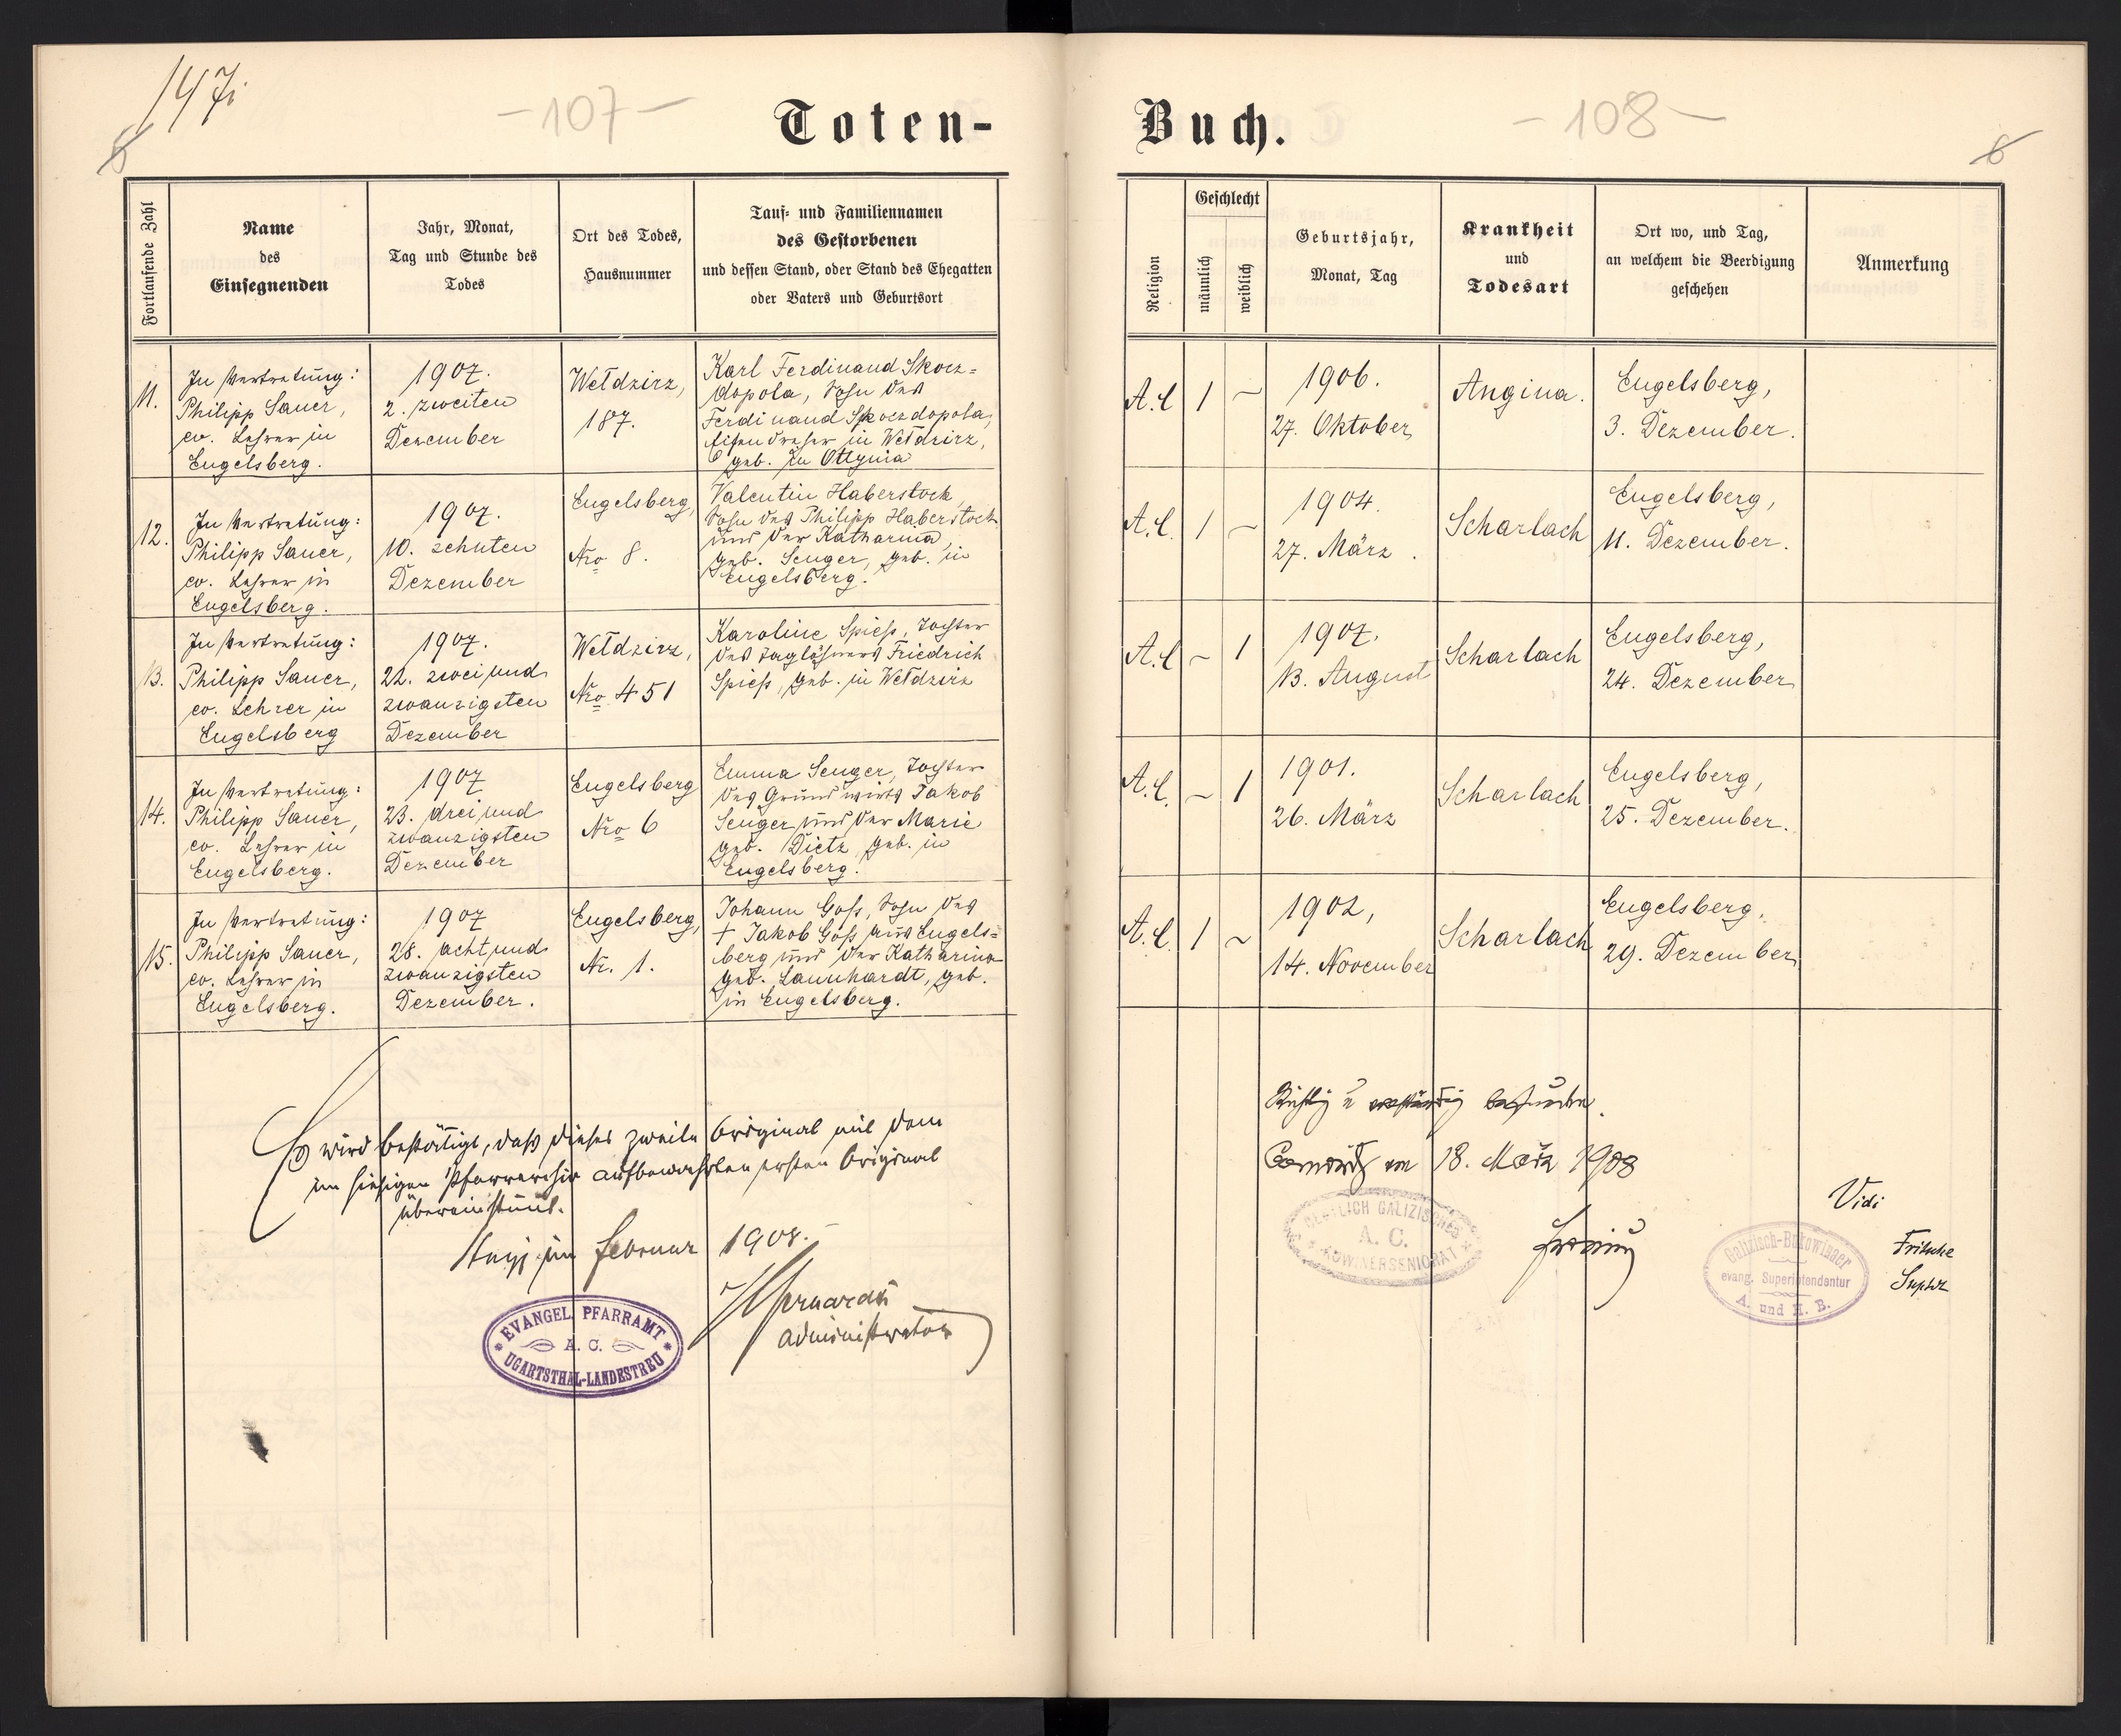 147i
- 107 -
Toten-
6
Fortlaufende Zahl
Name
des
Einsegnenden
Jahr, Monat,
Tag und Stunde des
Todes
Ort des Todes,
Hausnummer
Tauf- und Familiennamen
des Gestorbenen
und dessen Stand, oder Stand des Ehegatten
oder Vaters und Geburtsort
11.
In Vertretung:
Philipp Sauer,
ev. Lehrer in
Engelsberg.
1907.
2. zweiten
Dezember
Wełdzirz,
187.
Karl Ferdinand Skorz=
dopola, Sohn des
Ferdinand Skorzdopola,
Eisendreher in Wełdzirz,
geb. zu Ottynia
12.
In Vertretung:
Philipp Sauer,
ev. Lehrer in
Engelsberg.
1907.
10. zehnten
Dezember
Engelsberg,
Nro 8.
Valentin Haberstock,
Sohn des Philipp Haberstock
und der Katharina,
geb. Senger, geb. in
Engelsberg.
13.
In Vertretung:
Philipp Sauer,
ev. Lehrer in
Engelsberg
1907.
22. zwei und
zwanzigsten
Dezember
Wełdzirz,
Nro 451
Karoline Spiess, Tochter
des Taglöhners Friedrich
Spiess, geb. in Wełdzirz
14.
In Vertretung:
Philipp Sauer,
ev. Lehrer in
Engelsberg.
1907
23. drei und
zwanzigsten
Dezember
Engelsberg
Nro 6
Emma Senger, Tochter
des Grundwirts Jakob
Senger und der Marie
geb. Dietz, geb. in
Engelsberg.
15.
In Vertretung:
Philipp Sauer,
ev. Lehrer in
Engelsberg.
1907
28. acht und
zwanzigsten
Dezember.
Engelsberg,
Nr. 1.
Johann Goss, Sohn des
† Jakob Goss aus Engels=
berg und der Katharina
geb. Launhardt, geb.
in Engelsberg.
Es wird bestätigt, daß dieses zweite Original mit dem
im hiesigen Pfarrarchiv aufbewahrten ersten Original
übereinstimmt.
im Februar 1908.
Administrator
EVANGEL. PFARRAMT
A. C.
UGARTSTHAL-LANDESTREU
Buch.
- 108 -
6
Religion
Geschlecht
männlich
weiblich
Geburtsjahr,
Monat, Tag
Krankheit
und
Todesart
Ort wo, und Tag,
an welchem die Beerdigung
geschehen
Anmerkung
A.C.
1
~
1906.
27. Oktober
Angina.
Engelsberg,
3. Dezember.
A.C.
1
~
1904.
27. März.
Scharlach
Engelsberg,
11. Dezember.
A.C.
~
1
1907.
13. August
Scharlach
Engelsberg,
24. Dezember
A.C.
~
1
1901.
26. März
Scharlach
Engelsberg,
25. Dezember.
A.C.
1
~
1902,
14. November
Scharlach
Engelsberg,
29. Dezember
Richtig u. vollständig befunden.
18. März 1908
A. C.
Vidi
Fritsche
Suptdt
Galizisch-Bukowinaer
evang. Superintendentur
A. und H. B.